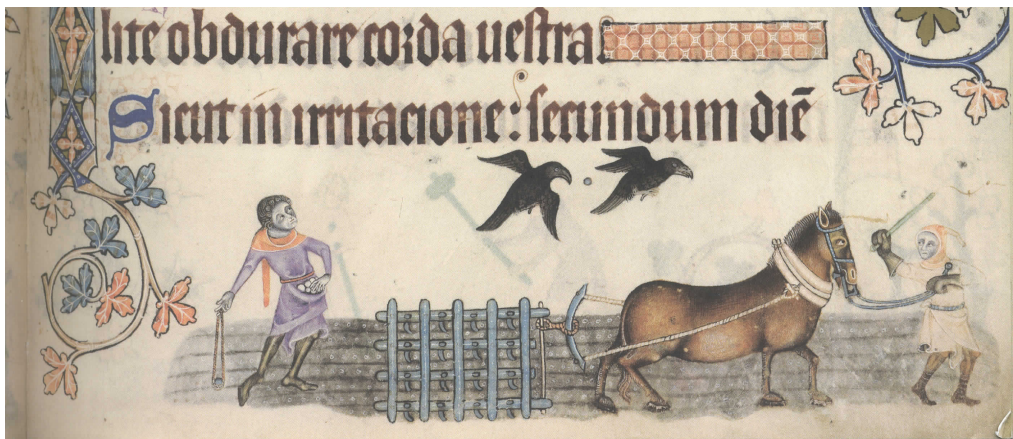 lite obdurare corda uestra.
Sicut in irritacione: secundum diē